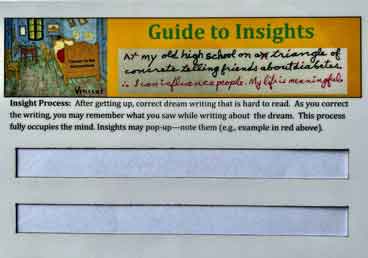 Guide to Insights
At my old high school on a triangle of
concrete telling friends about diabetes.
I can influence people. My life is meaningful.
Vincent
Insight Process: After getting up, correct dream writing that is hard to read. As you correct
the writing, you may remember what you saw while writing about the dream. This process
fully occupies the mind. Insights may pop-up—note them (e.g., example in red above).